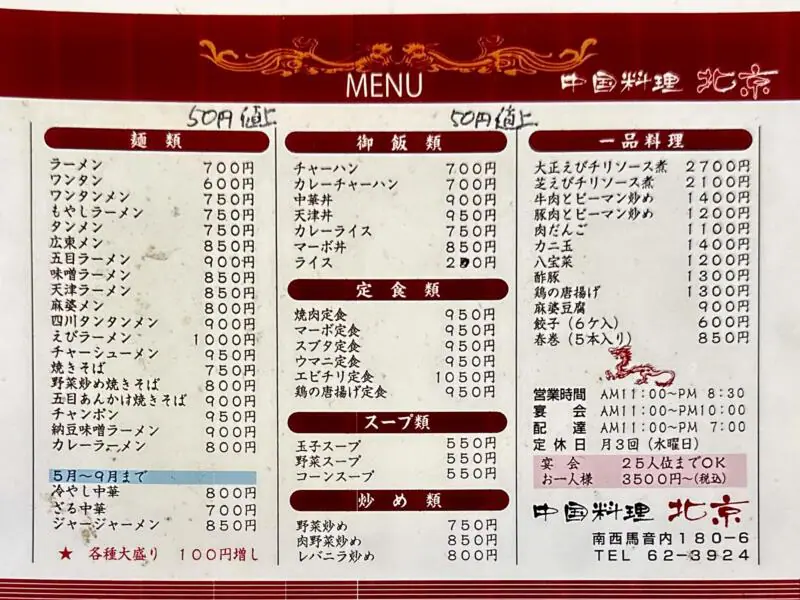 MENU
中国料理 北京
50円値上
麺類
ラーメン 700円
ワンタン 600円
ワンタンメン 750円
もやしラーメン 750円
タンメン 750円
広東メン 850円
五目ラーメン 900円
味噌ラーメン 850円
天津ラーメン 850円
麻婆メン 800円
四川タンタンメン 900円
えびラーメン 1000円
チャーシューメン 950円
焼きそば 750円
野菜炒め焼きそば 800円
五目あんかけ焼きそば 900円
チャンポン 950円
納豆味噌ラーメン 900円
カレーラーメン 800円
5月〜9月まで
冷やし中華 800円
ざる中華 700円
ジャージャーメン 850円
★ 各種大盛り 100円増し
50円値上
御飯類
チャーハン 700円
カレーチャーハン 700円
中華丼 900円
天津丼 950円
カレーライス 750円
マーボ丼 850円
ライス
定食類
焼肉定食 950円
マーボ定食 950円
スブタ定食 950円
ウマニ定食 950円
エビチリ定食 1050円
鶏の唐揚げ定食 950円
スープ類
玉子スープ 550円
野菜スープ 550円
コーンスープ 550円
炒め類
野菜炒め 750円
肉野菜炒め 850円
レバニラ炒め 800円
一品料理
大正えびチリソース煮 2700円
芝えびチリソース煮 2100円
牛肉とピーマン炒め 1400円
豚肉とピーマン炒め 1200円
肉だんご 1100円
カニ玉 1400円
八宝菜 1200円
酢豚 1300円
鶏の唐揚げ 1300円
麻婆豆腐 900円
餃子（6ケ入） 600円
春巻（5本入り） 850円
営業時間 AM11:00〜PM 8:30
宴会 AM11:00〜PM10:00
配達 AM11:00〜PM 7:00
定休日 月3回（水曜日）
宴会 25人位までOK
お一人様 3500円〜(税込)
中国料理 北京
南西馬音内180-6
TEL 62-3924